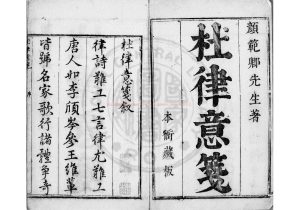 顏範卿先生著
杜律意箋
本衙藏板
杜律意箋叙
律詩難工七言律尤難工
唐人如李頎岑參王維輩
皆號名家歌行諸體爭奇